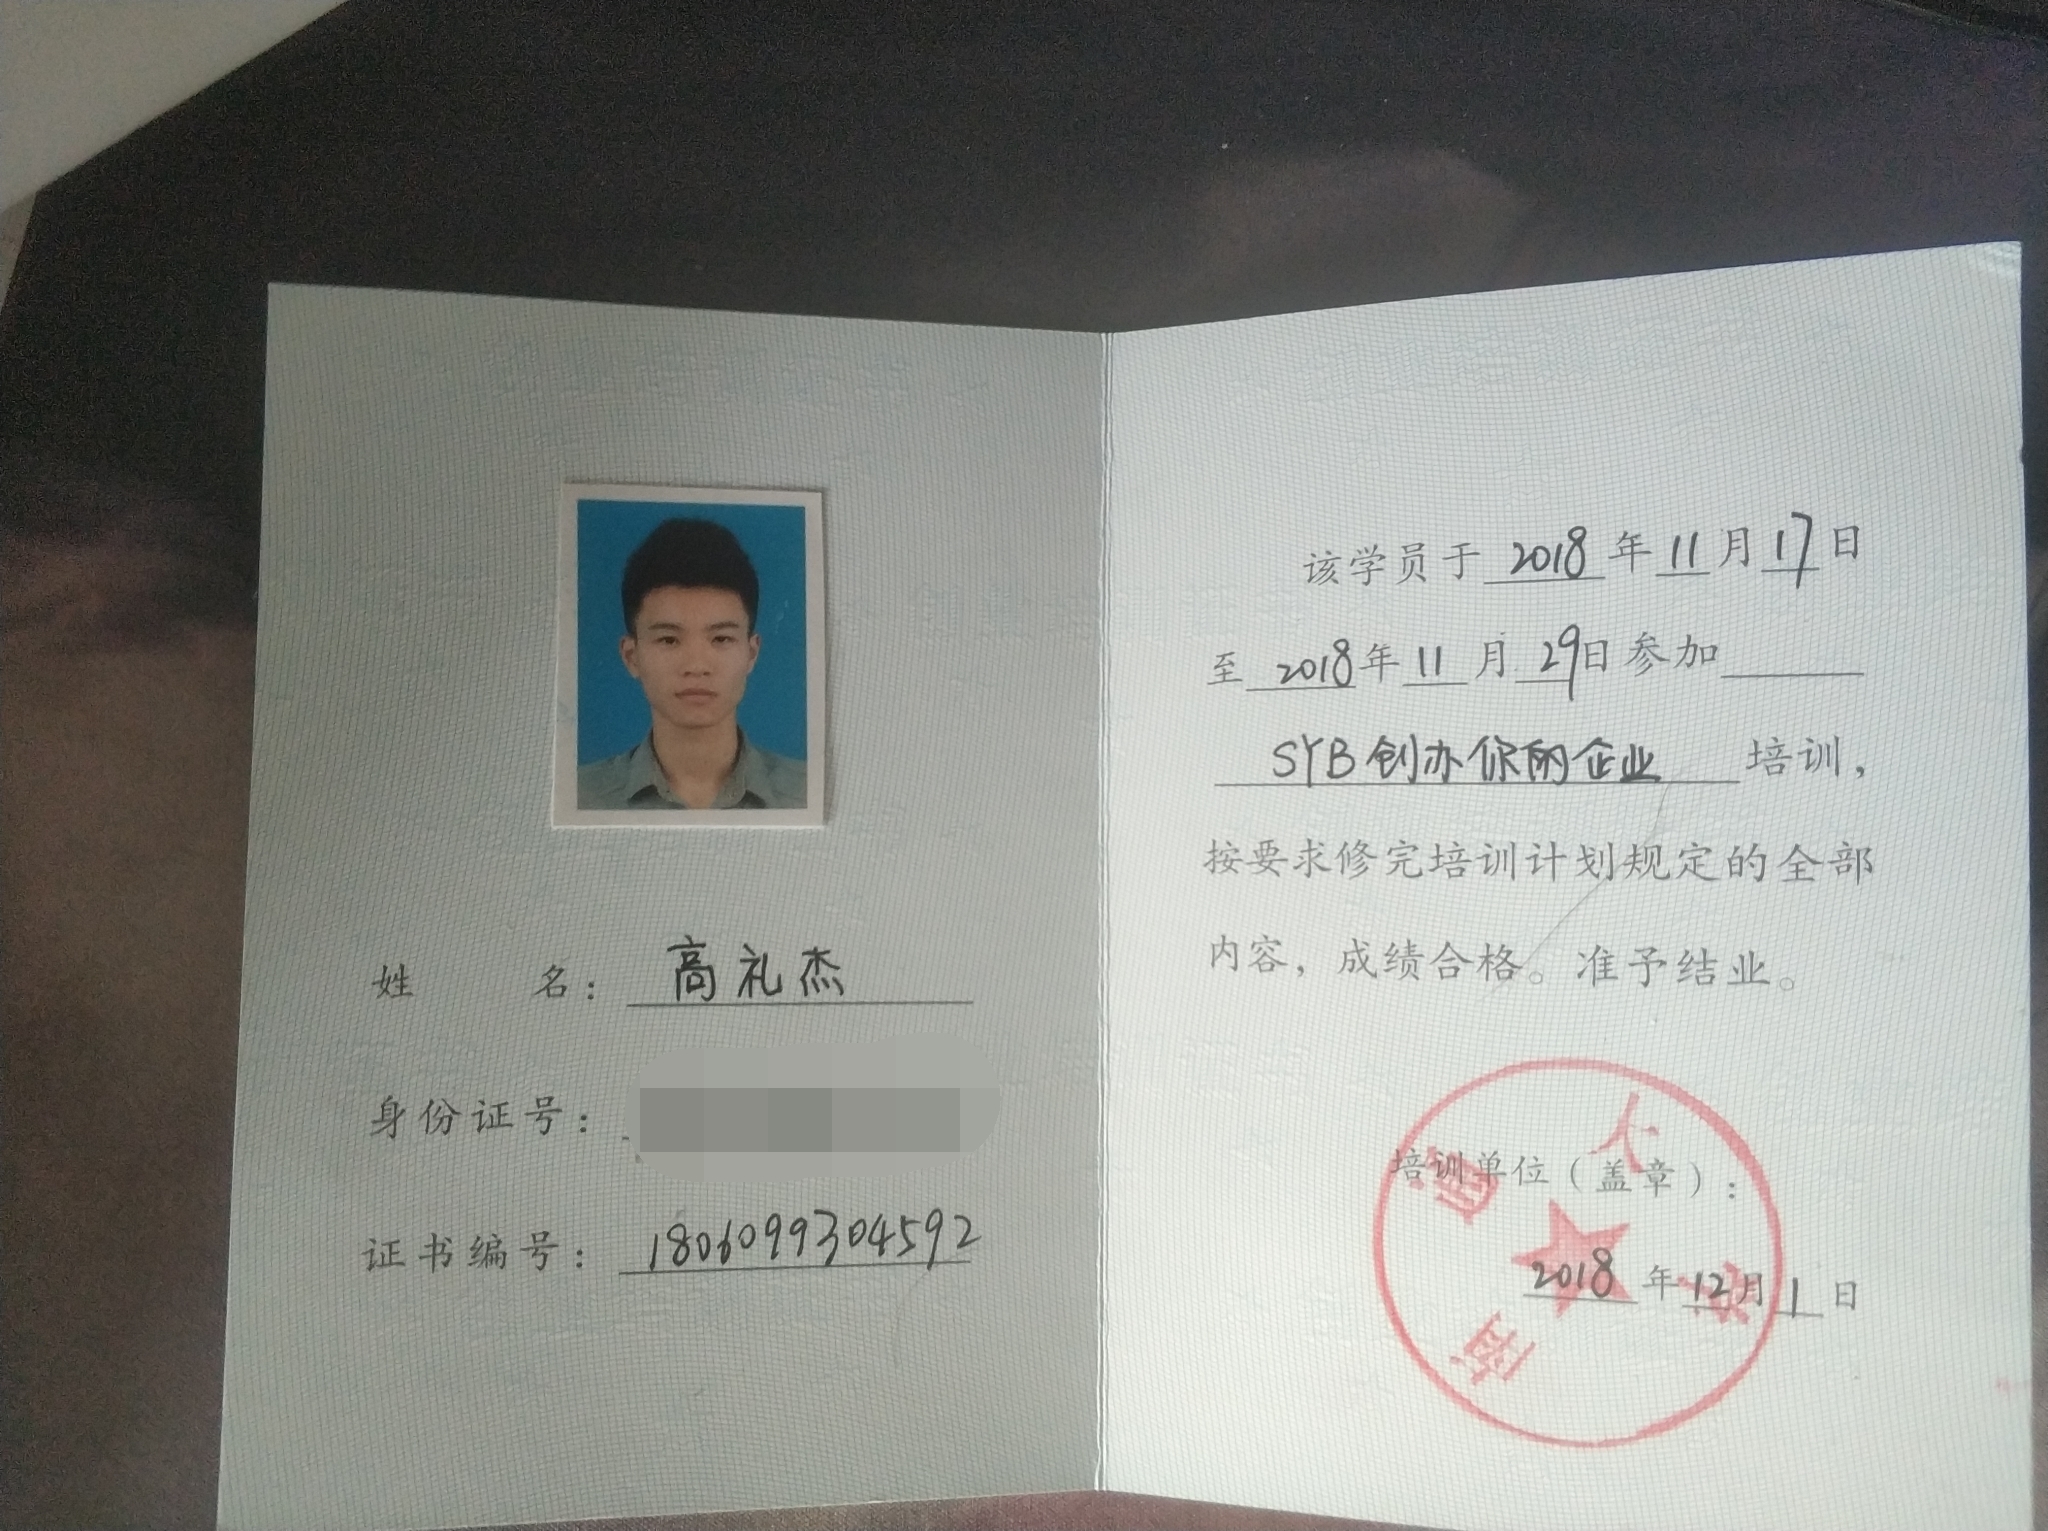 姓名：高礼杰
身份证号：
证书编号：1806099304592
该学员于 2018 年 11 月 17 日
至 2018 年 11 月 29 日参加
SYB创办你的企业 培训，
按要求修完培训计划规定的全部
内容，成绩合格。准予结业。
培训单位（盖章）：
2018 年 12 月 1 日